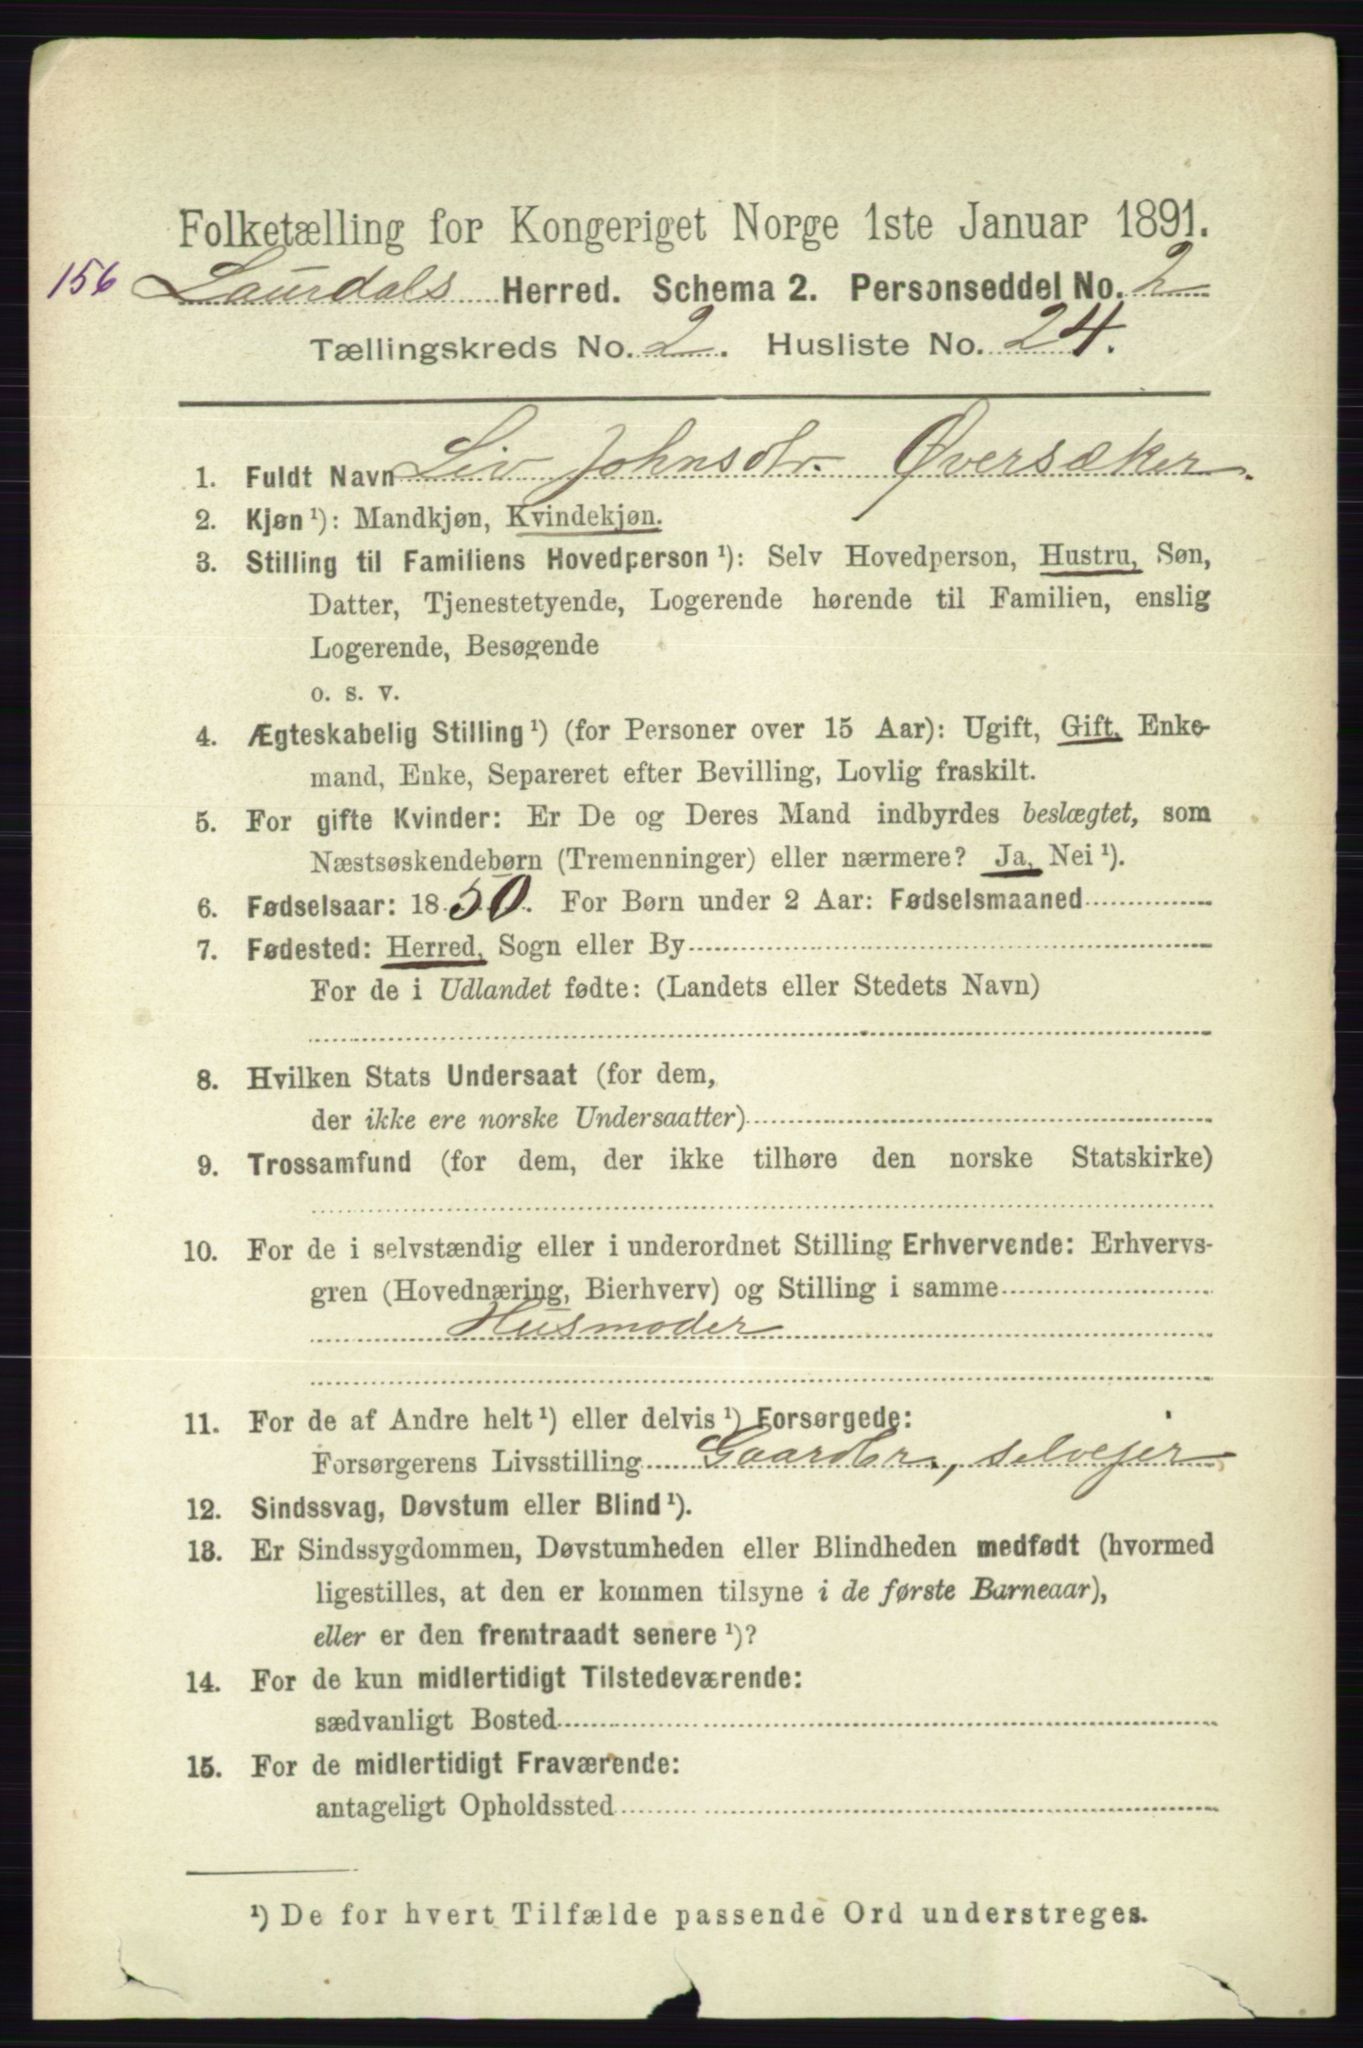 Folketælling for Kongeriget Norge 1ste Januar 1891.
156 Laurdals Herred. Schema 2. Personseddel No. 2
Tællingskreds No. 2. Husliste No. 24.
1. Fuldt Navn Liv Johnsdtr. Øversaker.
2. Kjøn ¹): Mandkjøn, Kvindekjøn.
3. Stilling til Familiens Hovedperson ¹): Selv Hovedperson, Hustru, Søn,
Datter, Tjenestetyende, Logerende hørende til Familien, enslig
Logerende, Besøgende
o. s. v.
4. Ægteskabelig Stilling ¹) (for Personer over 15 Aar): Ugift, Gift, Enke-
mand, Enke, Separeret efter Bevilling, Lovlig fraskilt.
5. For gifte Kvinder: Er De og Deres Mand indbyrdes beslægtet, som
Næstsøskendebørn (Tremenninger) eller nærmere? Ja, Nei ¹).
6. Fødselsaar: 1850. For Børn under 2 Aar: Fødselsmaaned
7. Fødested: Herred, Sogn eller By
For de i Udlandet fødte: (Landets eller Stedets Navn)
8. Hvilken Stats Undersaat (for dem,
der ikke ere norske Undersaatter)
9. Trossamfund (for dem, der ikke tilhøre den norske Statskirke)
10. For de i selvstændig eller i underordnet Stilling Erhvervende: Erhvervs-
gren (Hovednæring, Bierhverv) og Stilling i samme
Husmoder
11. For de af Andre helt ¹) eller delvis ¹) Forsørgede:
Forsørgerens Livsstilling Gaardbr., selvejer
12. Sindssvag, Døvstum eller Blind ¹).
13. Er Sindssygdommen, Døvstumheden eller Blindheden medfødt (hvormed
ligestilles, at den er kommen tilsyne i de første Barneaar),
eller er den fremtraadt senere ¹)?
14. For de kun midlertidigt Tilstedeværende:
sædvanligt Bosted
15. For de midlertidigt Fraværende:
antageligt Opholdssted
¹) De for hvert Tilfælde passende Ord understreges.